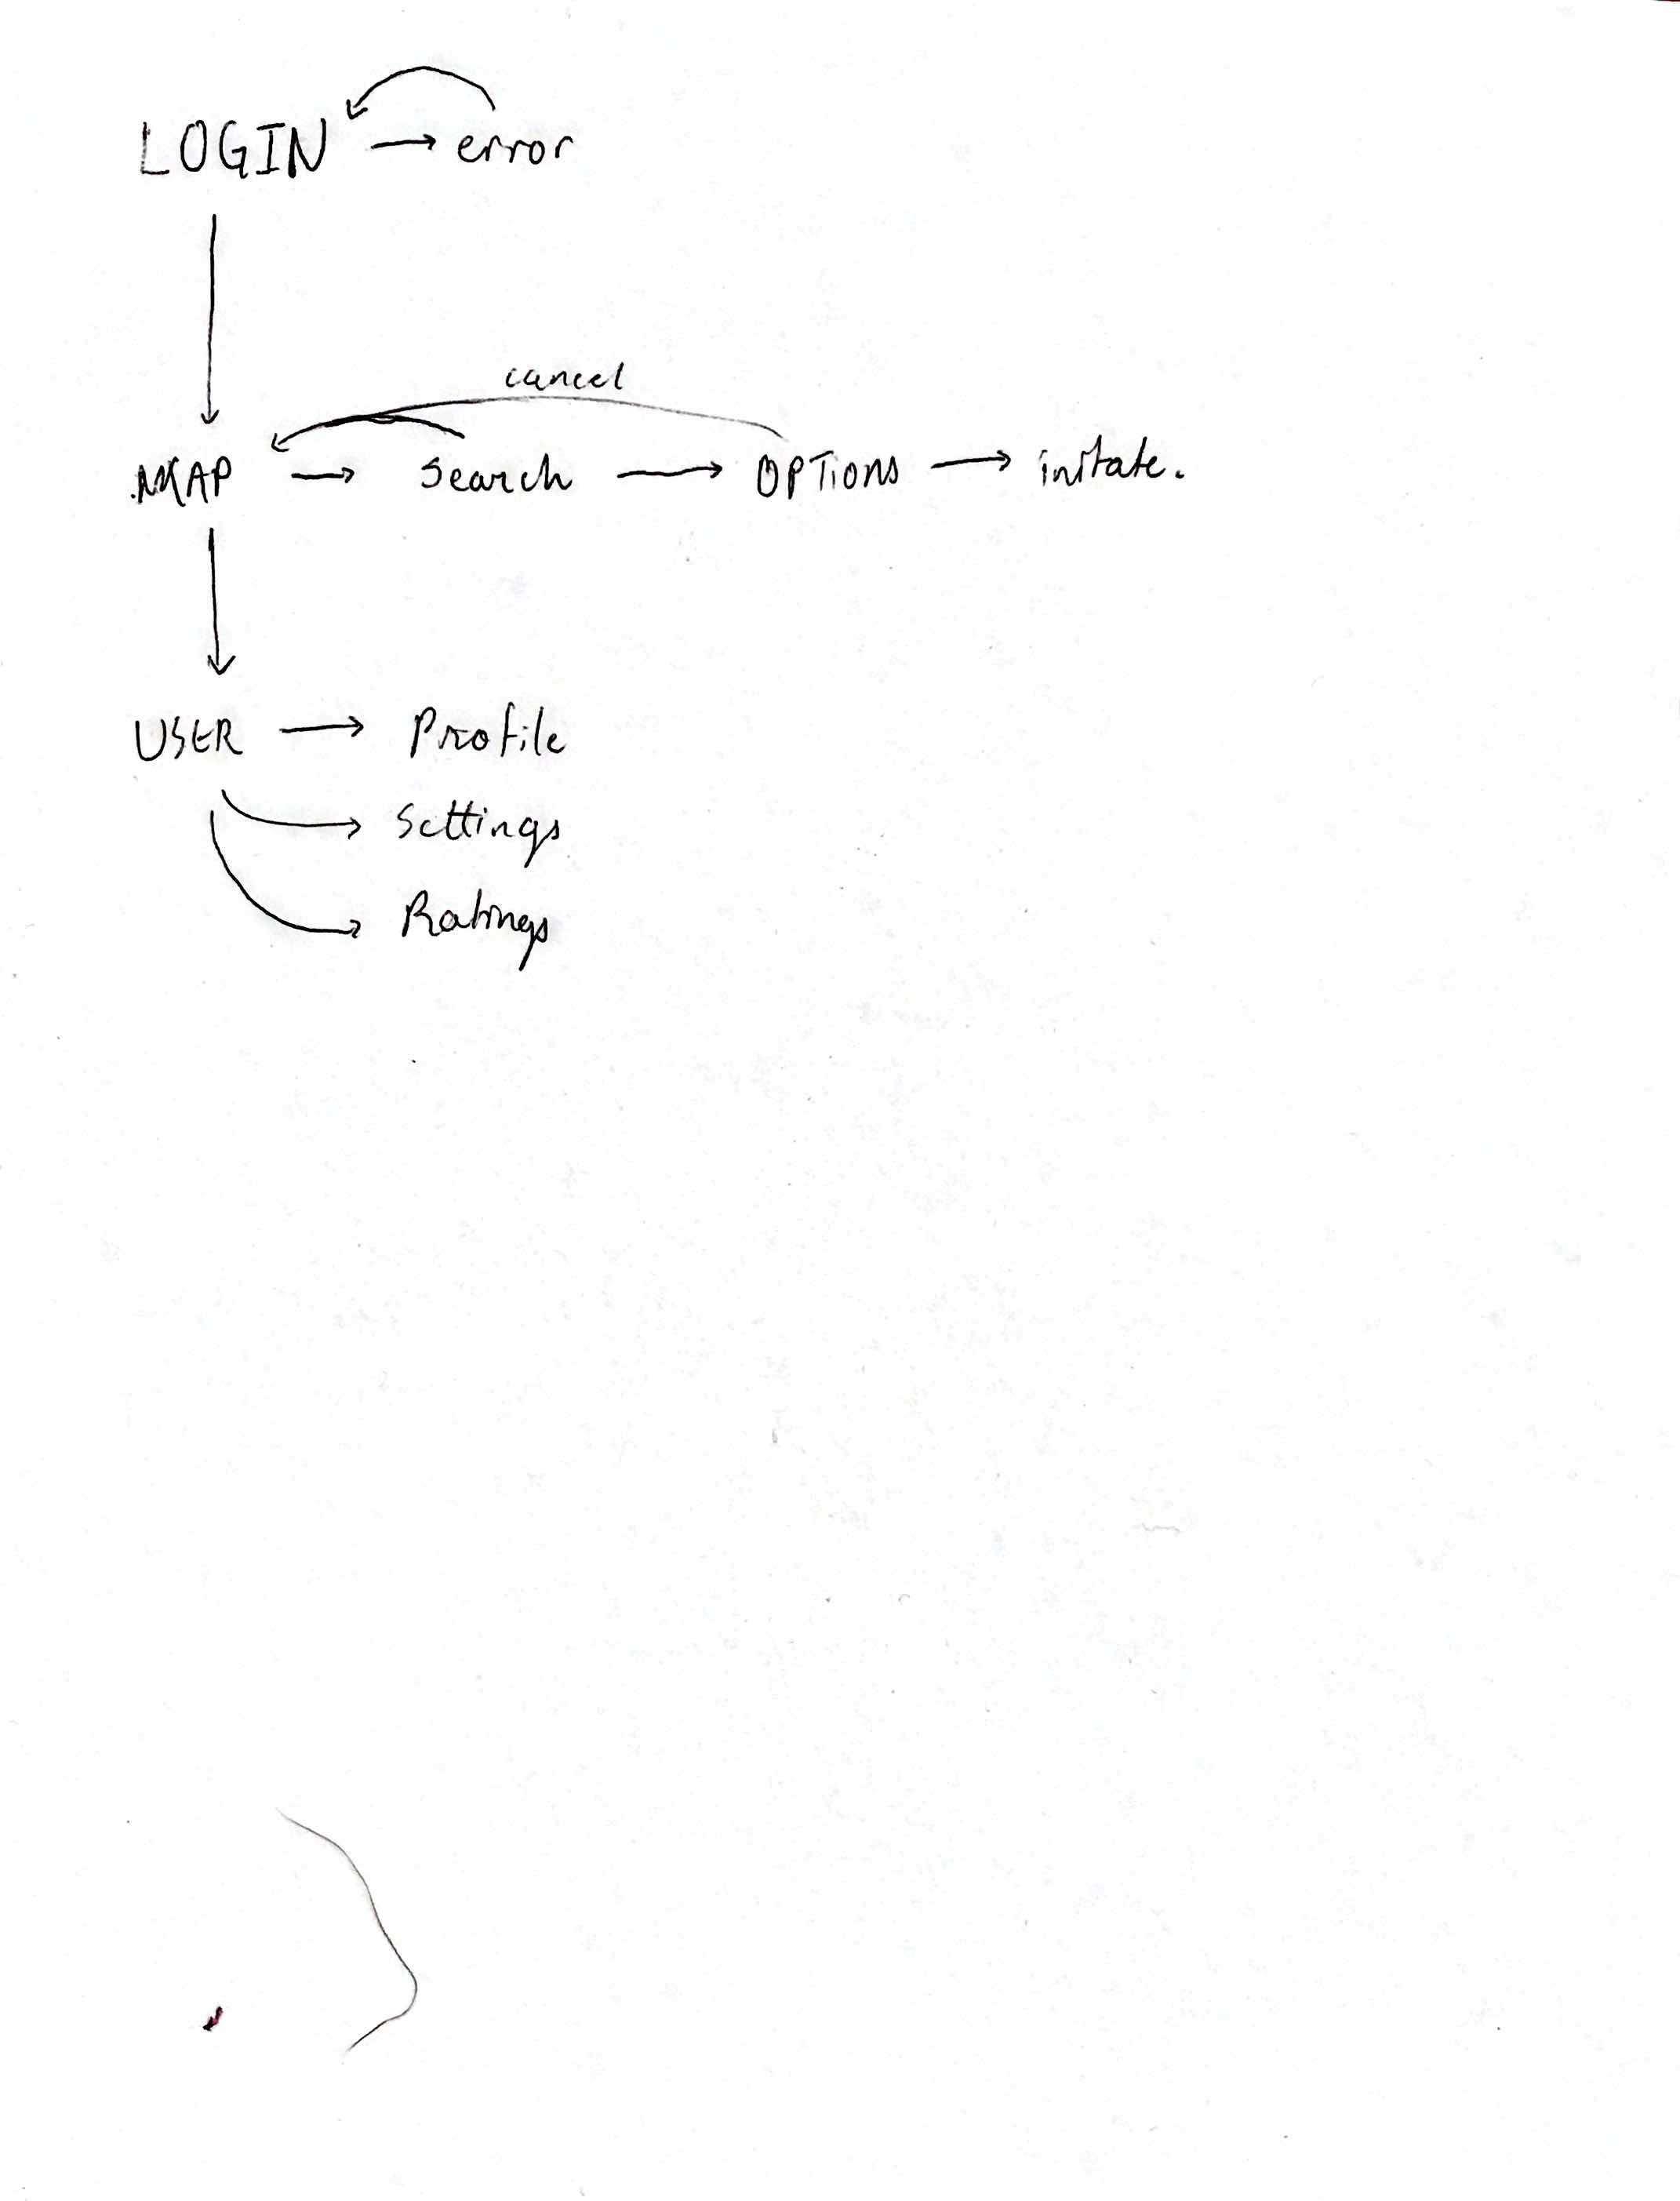 LOGIN → error
cancel
MAP → Search → OPTIONS → initate.
USER → Profile
Settings
Ratings